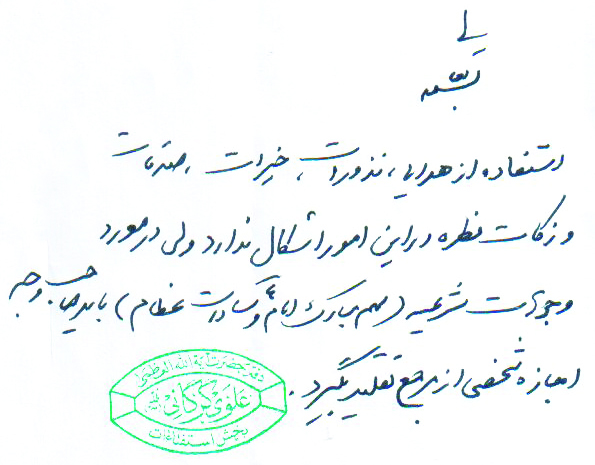 بسمه تعالی
استفاده از هدایا، نذورات، خیرات، صدقات
و زکات فطره در این امور اشکال ندارد ولی در مورد
وجوهات شرعیه (سهم مبارک امام و سادات عظام) باید صاحب وجه
اجازه شخصی از مرجع تقلید بگیرد.
دفتر حضرت آیة الله العظمی
علوی گرگانی
بخش استفتاءات